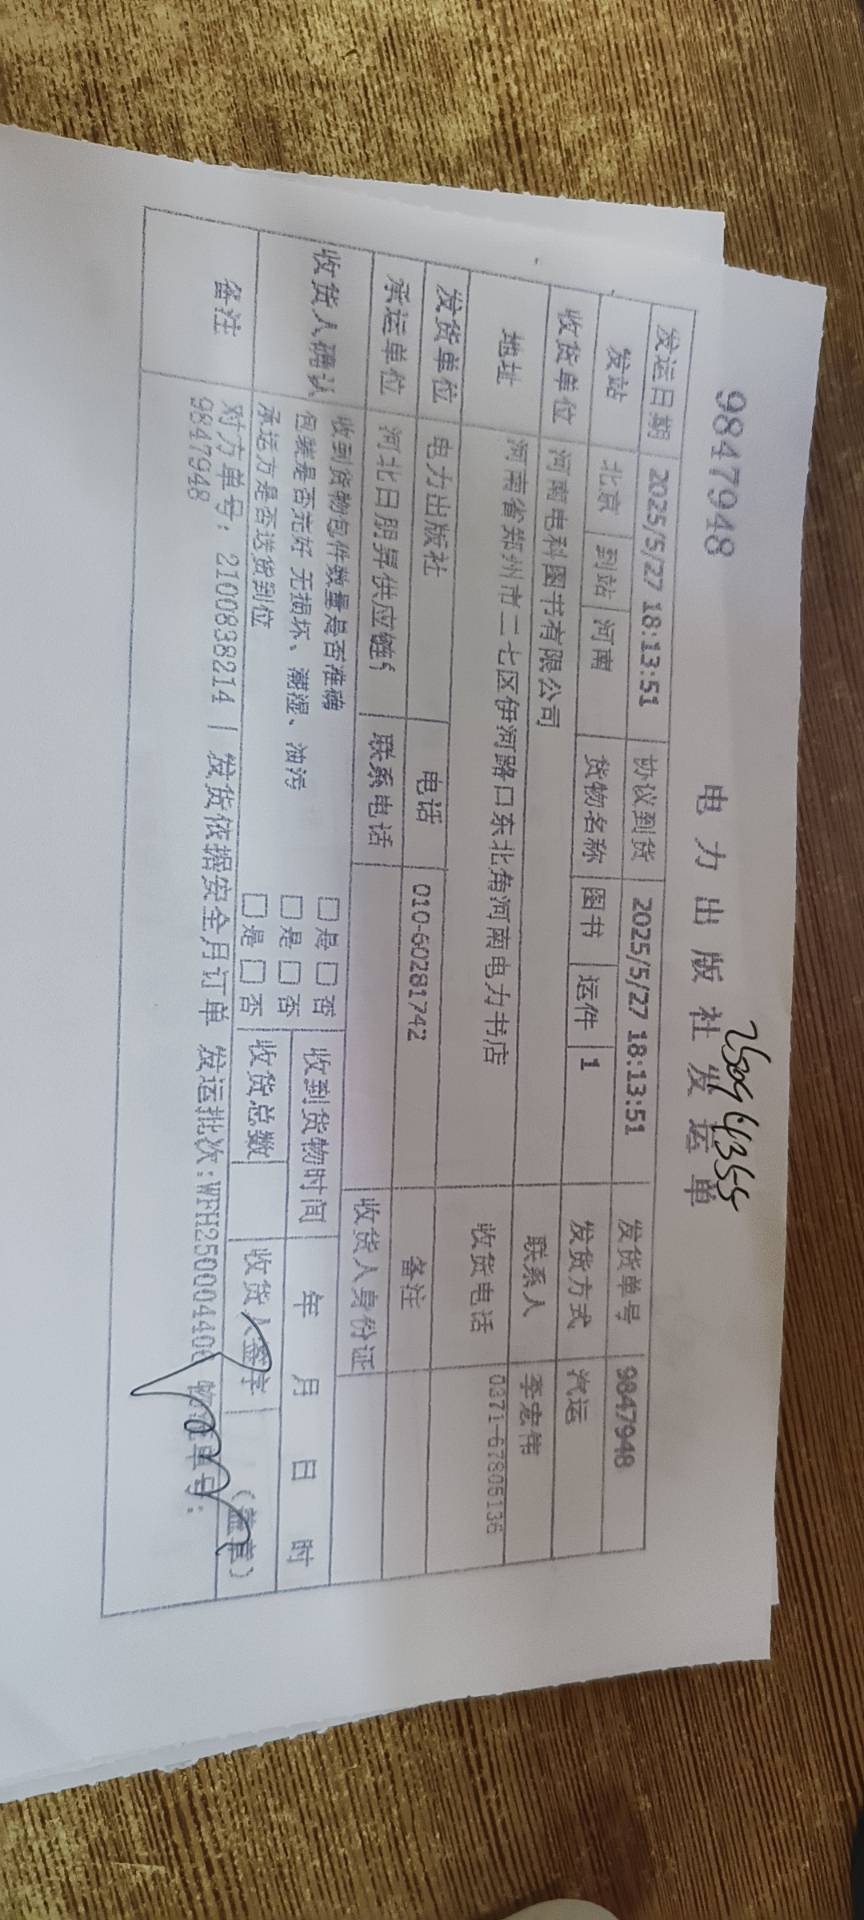 9847948
电力出版社发运单
发运日期 2025/5/27 18:13:51 协议到货 2025/5/27 18:13:51 发货单号 9847948
发站 北京 到站 河南 货物名称 图书 运件 1 发货方式 汽运
收货单位 河南电科图书有限公司 联系人 李宏伟
地址 河南省郑州市二七区伊河路口东北角河南电力书店 收货电话 0371-67905136
发货单位 电力出版社 电话 010-60281742 备注
承运单位 河北日朋昇供应链 联系电话 收货人身份证
收货人确认 收到货物包件数量是否准确 □是□否 收到货物时间 年 月 日 时
包装是否完好 无损坏、潮湿、油污 □是□否
承运方是否送货到位 □是□否 收货总数 收货人签字 (盖章)
备注 对方单号：2100838214 | 发货依据安全月订单 发运批次:WFH25000440 物流单号：
9847948